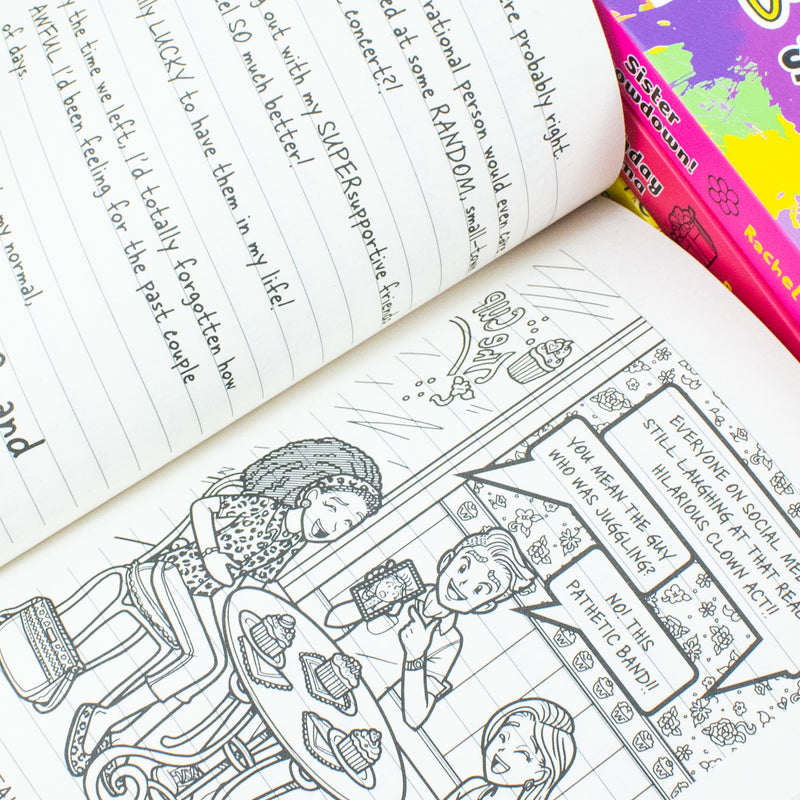 re probably right.
rational person would even care
ed at some RANDOM, small-town
concert?!
g out with my SUPERsupportive friends
el SO much better!
lly LUCKY to have them in my life!
y the time we left, I'd totally forgotten how
AWFUL I'd been feeling for the past couple
of days.
my normal,
and
EVERYONE ON SOCIAL ME
STILL LAUGHING AT THAT REA
HILARIOUS CLOWN ACT!!
YOU MEAN THE GUY
WHO WAS JUGGLING?
NO! THIS
PATHETIC BAND!!
Sister
owdown!
Rachel
day